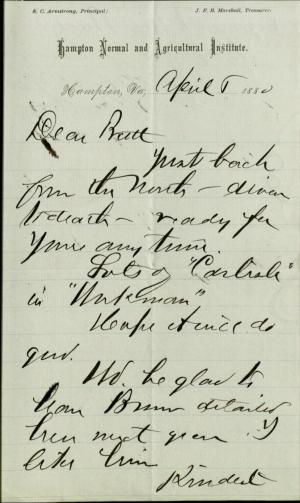 S. C. Armstrong, Principal; J. F. B. Marshall, Treasurer.
Hampton Normal and Agricultural Institute.
Hampton, Va., April 8 1880
Dear Pratt
Just back
from the North - driven
to death - ready for
Yours any time.
Lots of "Carlisle"
in "Workman"
Hope it will do
good.
Wd. be glad to
have Brown detailed
here next year. I
like him
Kindest